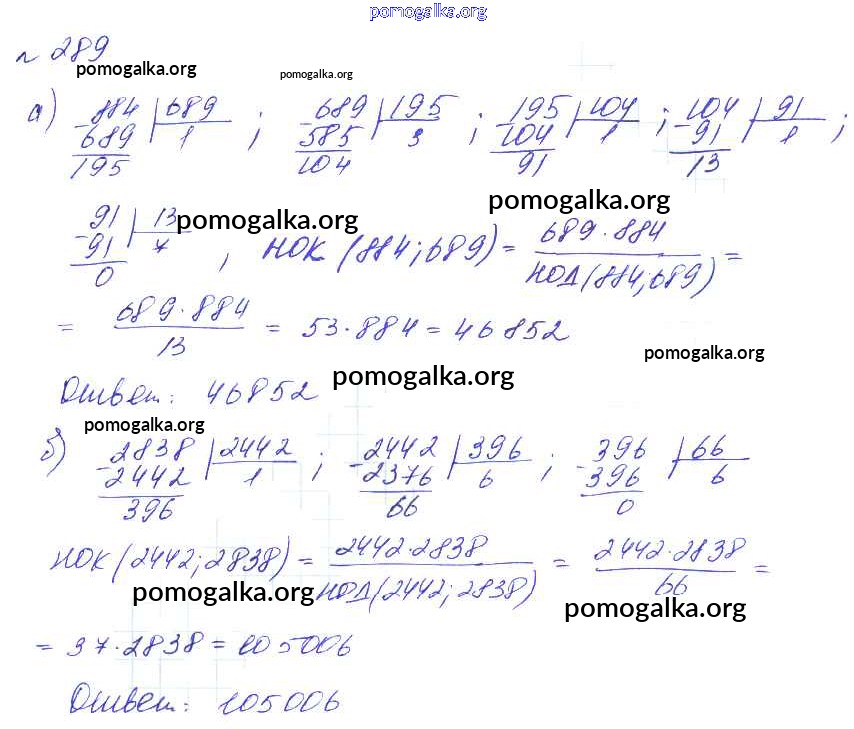 pomogalka.org
№ 289
pomogalka.org pomogalka.org
а) 884 | 689 ; 689 | 195 ; 195 | 104 ; 104 | 91 ;
- 689 | 1 - 585 | 3 - 104 | 1 - 91 | 1
195 104 91 13
pomogalka.org
91 | 13 pomogalka.org
- 91 | 7 , НОК (884; 689) = 689 · 884 / НОД (884; 689) =
0
= 689 · 884 / 13 = 53 · 884 = 46852
pomogalka.org
Ответ: 46852 pomogalka.org
pomogalka.org
б) 2838 | 2442 ; 2442 | 396 ; 396 | 66
- 2442 | 1 - 2376 | 6 - 396 | 6
396 66 0
НОК (2442; 2838) = 2442 · 2838 / НОД (2442; 2838) = 2442 · 2838 / 66 =
pomogalka.org pomogalka.org
= 37 · 2838 = 105006
Ответ: 105006